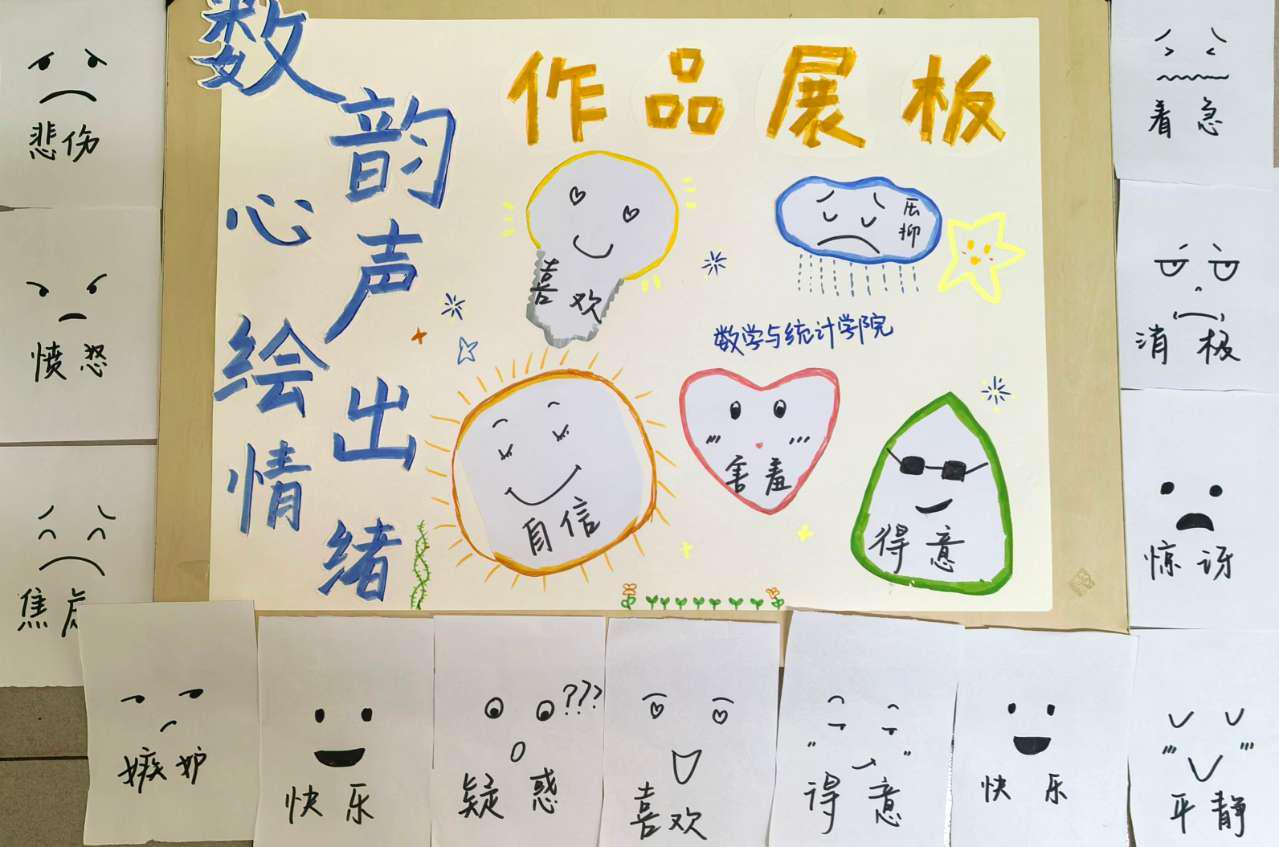 数韵心声
绘出情绪
作品展板
喜欢
压抑
数学与统计学院
自信
害羞
得意
悲伤
愤怒
焦虑
着急
消极
惊讶
嫉妒
快乐
???
疑惑
喜欢
得意
快乐
平静